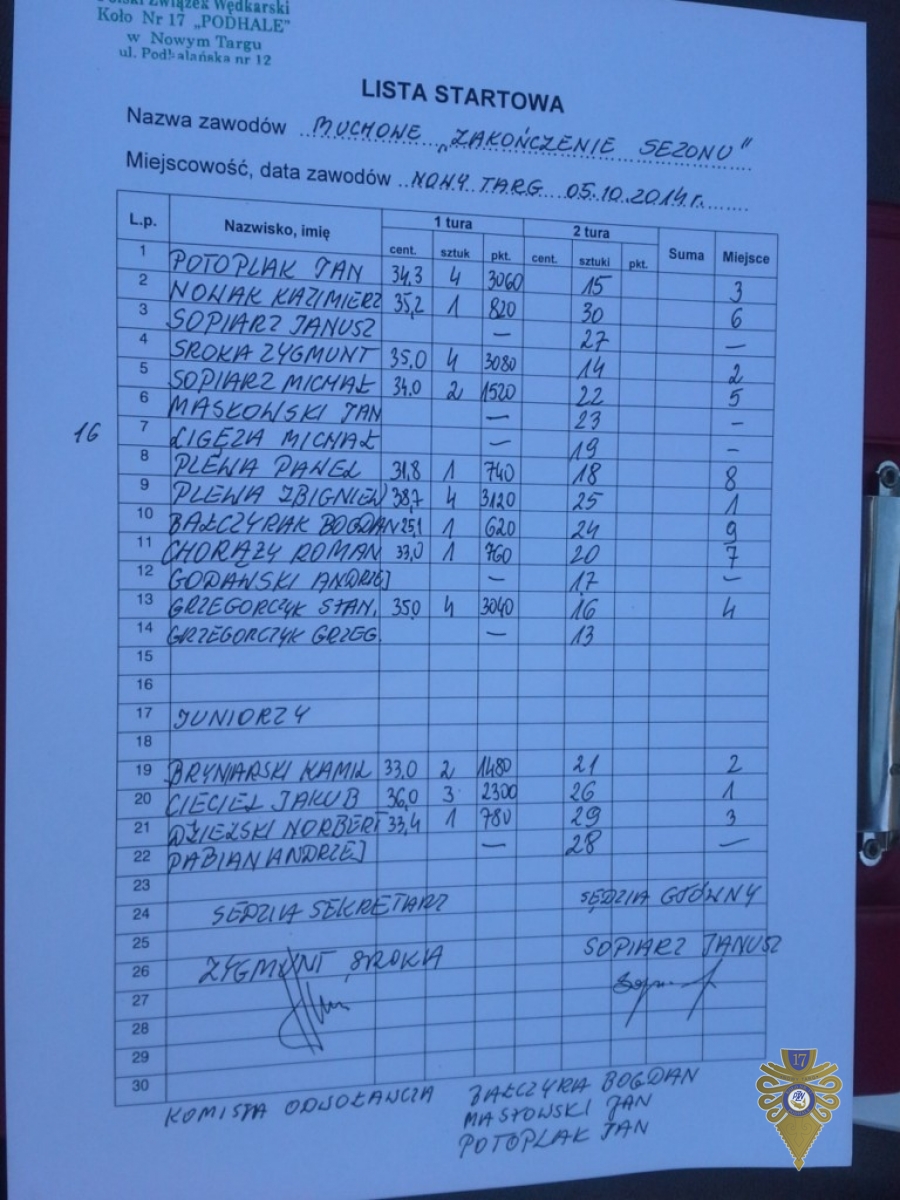 Polski Związek Wędkarski
Koło Nr 17 „PODHALE"
w Nowym Targu
ul. Podhalańska nr 12
LISTA STARTOWA
Nazwa zawodów MUCHOWE „ZAKOŃCZENIE SEZONU"
Miejscowość, data zawodów NOWY TARG 05.10.2014 r.
L.p. Nazwisko, imię 1 tura 2 tura Suma Miejsce
cent. sztuk pkt. cent. sztuki pkt.
1 POTOPLAK JAN 34,3 4 3060 15 3
2 NOWAK KAZIMIERZ 35,2 1 820 30 6
3 SOPIARZ JANUSZ — 27 —
4 SROKA ZYGMUNT 35,0 4 3080 14 2
5 SOPIARZ MICHAŁ 34,0 2 1520 22 5
6 MASŁOWSKI JAN — 23 —
16
7 LIGĘZA MICHAŁ — 19 —
8 PLEWA PAWEŁ 31,8 1 740 18 8
9 PLEWA ZBIGNIEW 38,7 4 3120 25 1
10 BAŁCZYRAK BOGDAN 25,1 1 620 24 9
11 CHORĄŻY ROMAN 33,0 1 760 20 7
12 GODAWSKI ANDRZEJ — 17 —
13 GRZEGORCZYK STAN. 35,0 4 3040 16 4
14 GRZEGORCZYK GRZEG. — 13
15
16
17 JUNIORZY
18
19 BRYNIARSKI KAMIL 33,0 2 1480 21 2
20 CIECIEL JAKUB 36,0 3 2300 26 1
21 DZIELSKI NORBERT 33,4 1 780 29 3
22 PABIAN ANDRZEJ — 28 —
23
24 SĘDZIA SEKRETARZ SĘDZIA GŁÓWNY
25 SOPIARZ JANUSZ
26 ZYGMUNT SROKA
27
28
29
30
KOMISJA ODWOŁAWCZA BAŁCZYRA BOGDAN
MASŁOWSKI JAN
POTOPLAK JAN
17